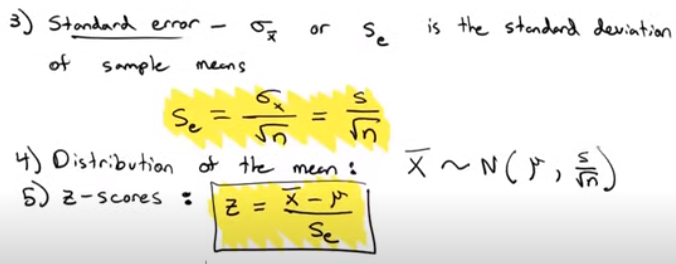 3) Standard error – σx̄ or Se is the standard deviation
of sample means
Se = σx/√n = s/√n
4) Distribution of the mean: X̄ ~ N(μ, s/√n)
5) z-scores : z = (x̄ – μ)/Se